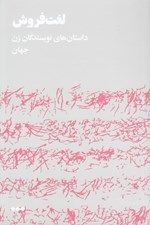 لغت‌فروش
داستان‌های نویسندگان زن
جهان